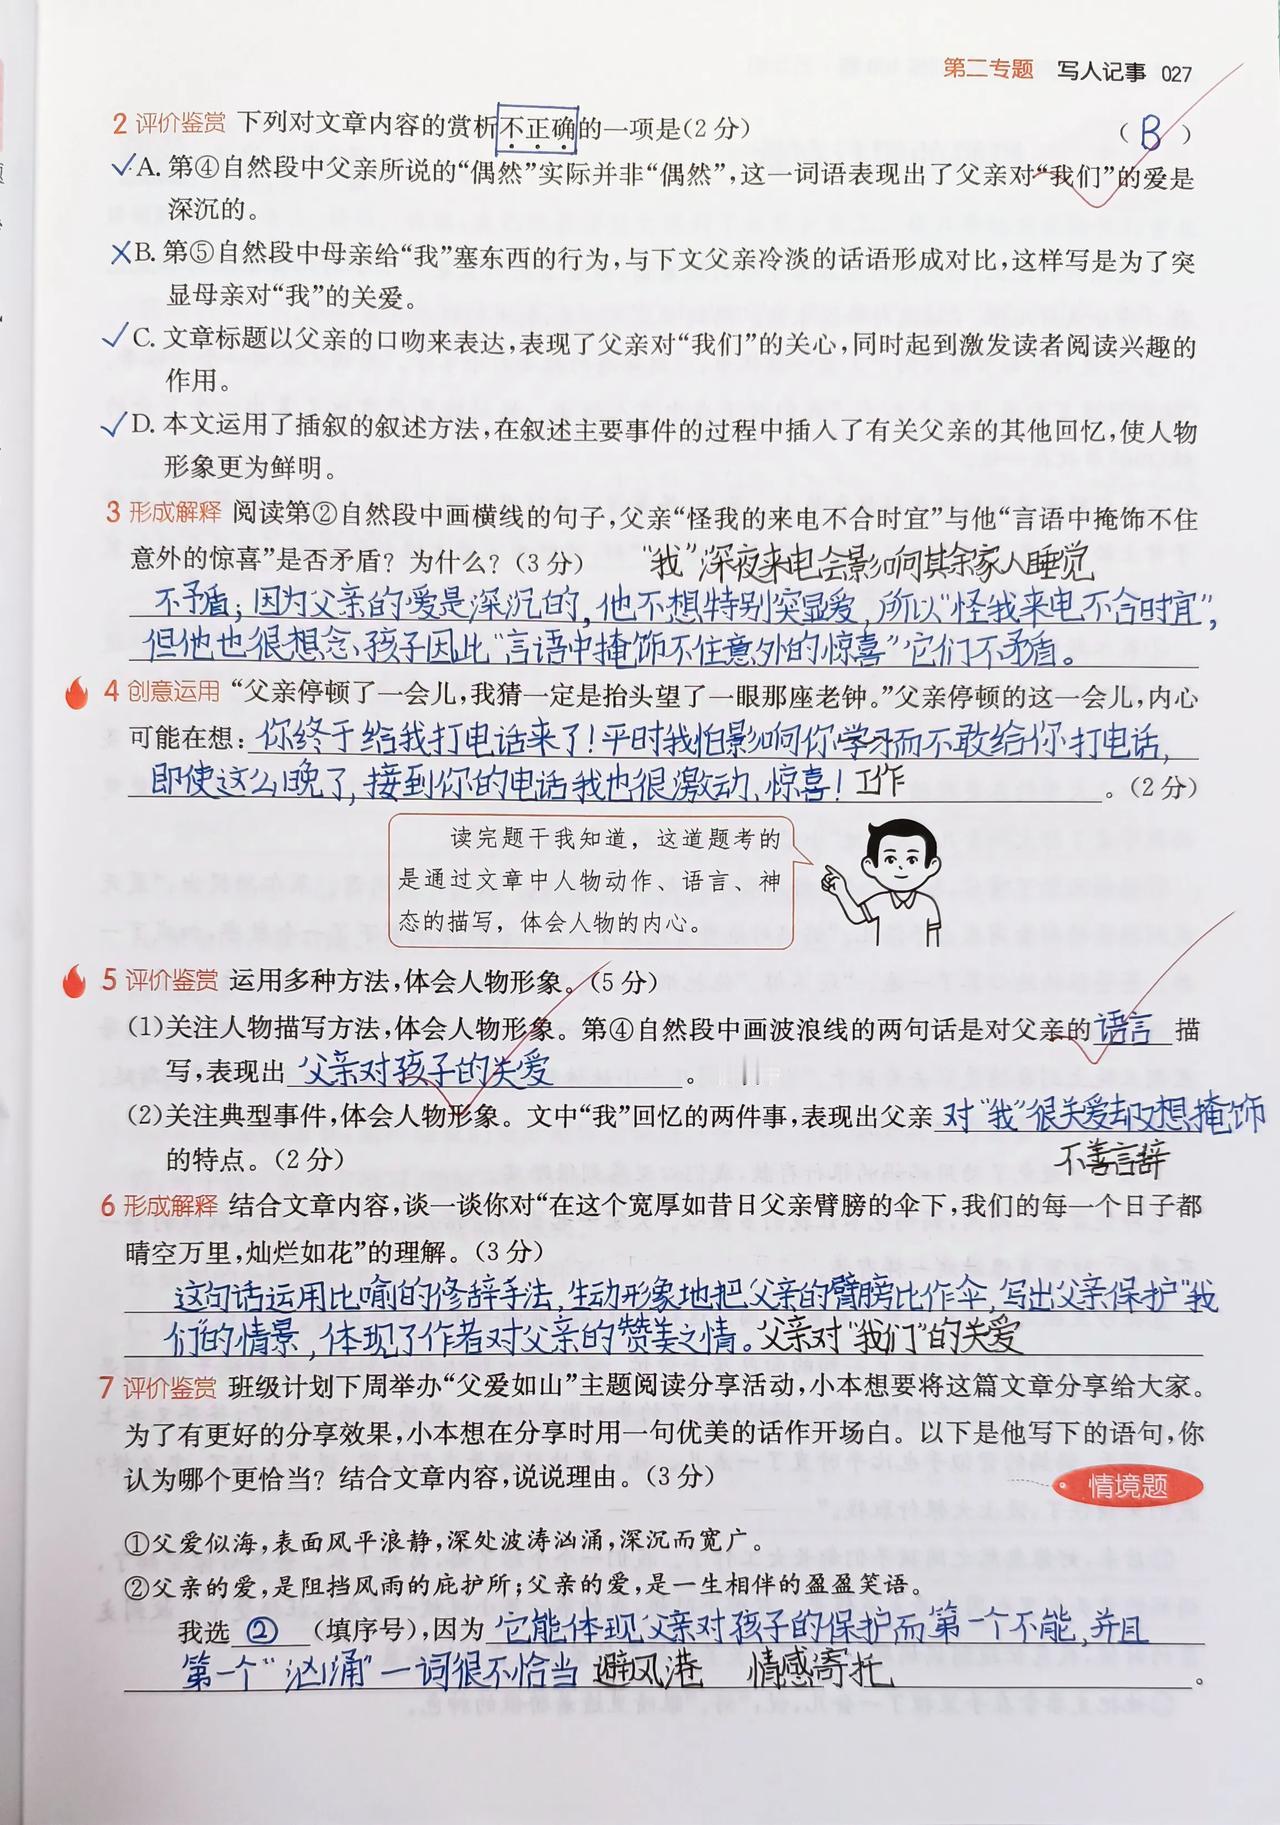 第二专题 写人记事 027
2 评价鉴赏 下列对文章内容的赏析不正确的一项是(2分) ( B )
✓A. 第④自然段中父亲所说的“偶然”实际并非“偶然”,这一词语表现出了父亲对“我们”的爱是
深沉的。
×B. 第⑤自然段中母亲给“我”塞东西的行为,与下文父亲冷淡的话语形成对比,这样写是为了突
显母亲对“我”的关爱。
✓C. 文章标题以父亲的口吻来表达,表现了父亲对“我们”的关心,同时起到激发读者阅读兴趣的
作用。
✓D. 本文运用了插叙的叙述方法,在叙述主要事件的过程中插入了有关父亲的其他回忆,使人物
形象更为鲜明。
3 形成解释 阅读第②自然段中画横线的句子,父亲“怪我的来电不合时宜”与他“言语中掩饰不住
意外的惊喜”是否矛盾？为什么？(3分) “我”深夜来电会影响其余家人睡觉
不矛盾；因为父亲的爱是深沉的,他不想特别突显爱,所以“怪我来电不合时宜”,
但他也很想念孩子因此“言语中掩饰不住意外的惊喜”它们不矛盾。
4 创意运用 “父亲停顿了一会儿,我猜一定是抬头望了一眼那座老钟。”父亲停顿的这一会儿,内心
可能在想:你终于给我打电话来了！平时我怕影响你学习而不敢给你打电话,
即使这么晚了,接到你的电话我也很激动、惊喜！工作。(2分)
读完题干我知道，这道题考的
是通过文章中人物动作、语言、神
态的描写，体会人物的内心。
5 评价鉴赏 运用多种方法,体会人物形象。(5分)
(1)关注人物描写方法,体会人物形象。第④自然段中画波浪线的两句话是对父亲的 语言 描
写,表现出 父亲对孩子的关爱 。
(2)关注典型事件,体会人物形象。文中“我”回忆的两件事,表现出父亲 对“我”很关爱却又想掩饰
的特点。(2分) 不善言辞
6 形成解释 结合文章内容,谈一谈你对“在这个宽厚如昔日父亲臂膀的伞下,我们的每一个日子都
晴空万里,灿烂如花”的理解。(3分)
这句话运用比喻的修辞手法,生动形象地把父亲的臂膀比作伞,写出父亲保护“我
们”的情景,体现了作者对父亲的赞美之情。父亲对“我们”的关爱
7 评价鉴赏 班级计划下周举办“父爱如山”主题阅读分享活动,小本想要将这篇文章分享给大家。
为了有更好的分享效果,小本想在分享时用一句优美的话作开场白。以下是他写下的语句,你
认为哪个更恰当？结合文章内容,说说理由。(3分) 情境题
①父爱似海,表面风平浪静,深处波涛汹涌,深沉而宽广。
②父亲的爱,是阻挡风雨的庇护所;父亲的爱,是一生相伴的盈盈笑语。
我选 ② (填序号),因为 它能体现父亲对孩子的保护而第一个不能,并且
第一个“汹涌”一词很不恰当 避风港 情感寄托 。